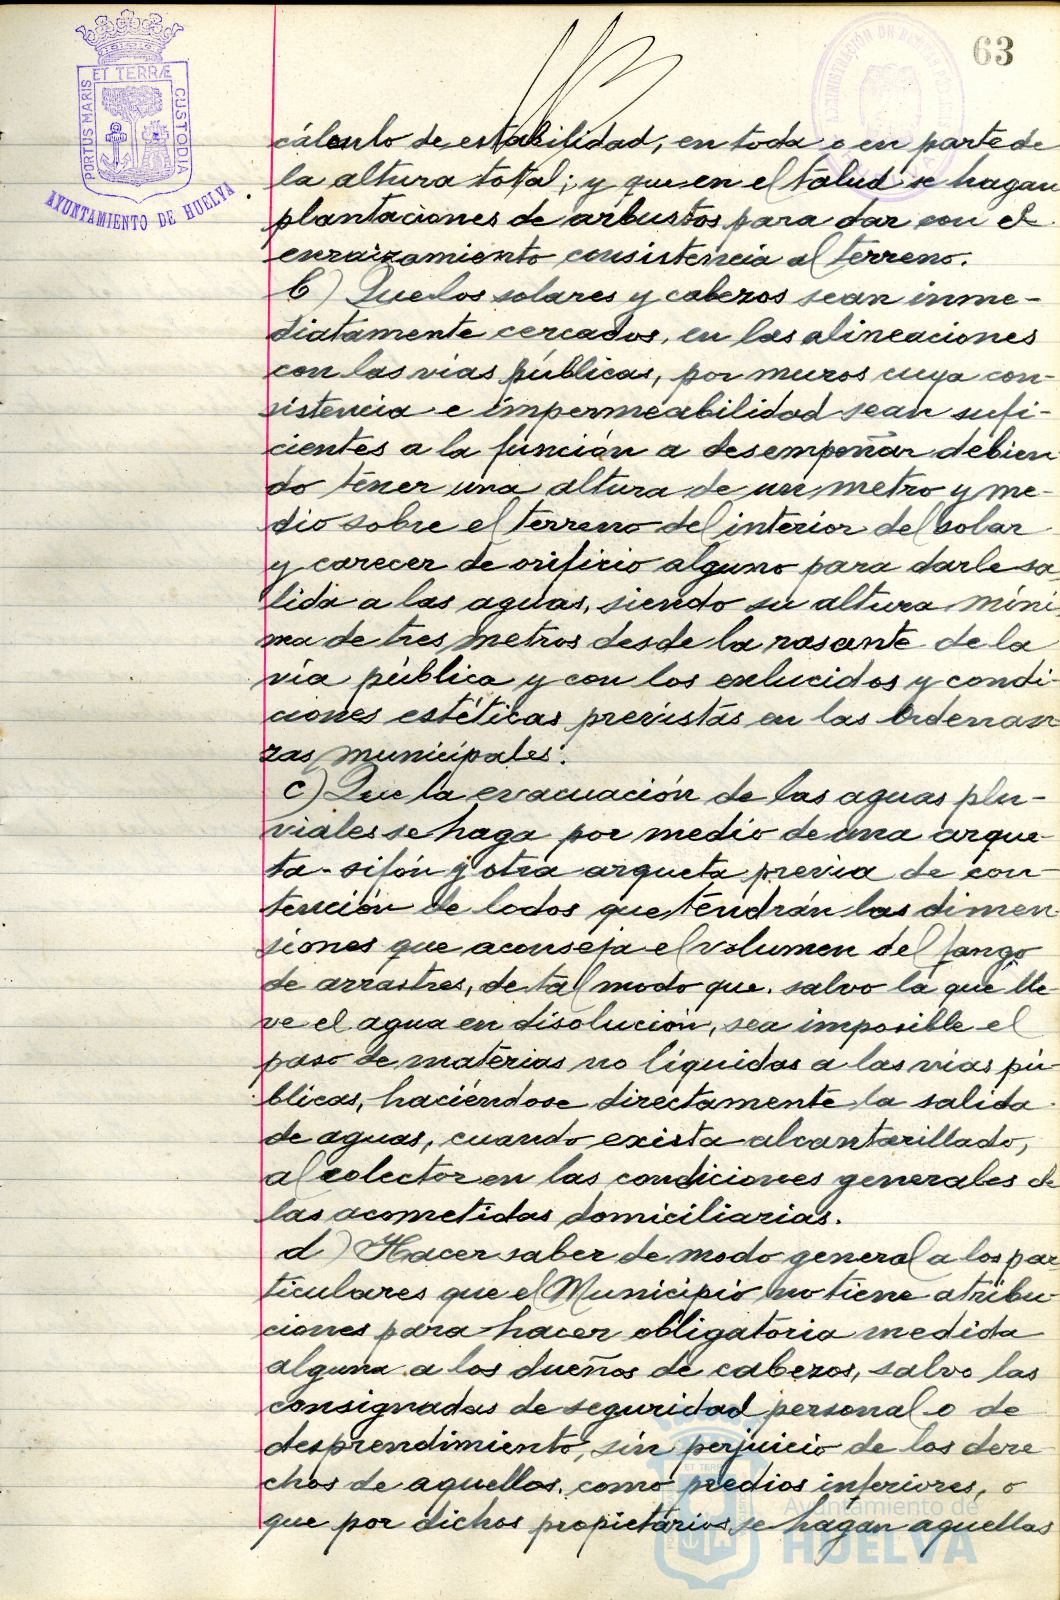 63
PORTUS MARIS
ET TERRÆ
CUSTODIA
AYUNTAMIENTO DE HUELVA
cálculo de estabilidad, en toda o en parte de
la altura total; y que en el talud se hagan
plantaciones de arbustos para dar con el
enraizamiento consistencia al terreno.
b) Que los solares y cabezos sean inme-
diatamente cercados, en las alineaciones
con las vias públicas, por muros cuya con-
sistencia e impermeabilidad sean sufi-
cientes a la función a desempeñar debien
do tener una altura de un metro y me-
dio sobre el terreno del interior del solar
y carecer de orificio alguno para darle sa
lida a las aguas, siendo su altura míni
ma de tres metros desde la rasante de la
via pública y con los enlucidos y condi-
ciones estéticas previstas en las Ordenan
zas municipales.
c) Que la evacuación de las aguas plu-
viales se haga por medio de una arque-
ta-sifón y otra arqueta previa de con-
tención de lodos que tendrán las dimen
siones que aconseja el volumen del fango
de arrastres, de tal modo que, salvo la que lle-
ve el agua en disolución, sea imposible el
paso de materias no líquidas a las vias pú-
blicas, haciéndose directamente la salida
de aguas, cuando exista alcantarillado,
al colector en las condiciones generales de
las acometidas domiciliarias.
d) Hacer saber de modo general a los par
ticulares que el Municipio no tiene atribu-
ciones para hacer obligatoria medida
alguna a los dueños de cabezos, salvo las
consignadas de seguridad personal o de
desprendimiento, sin perjuicio de los dere
chos de aquellos, como predios inferiores, o
que por dichos propietarios se hagan aquellas
Ayuntamiento de
HUELVA